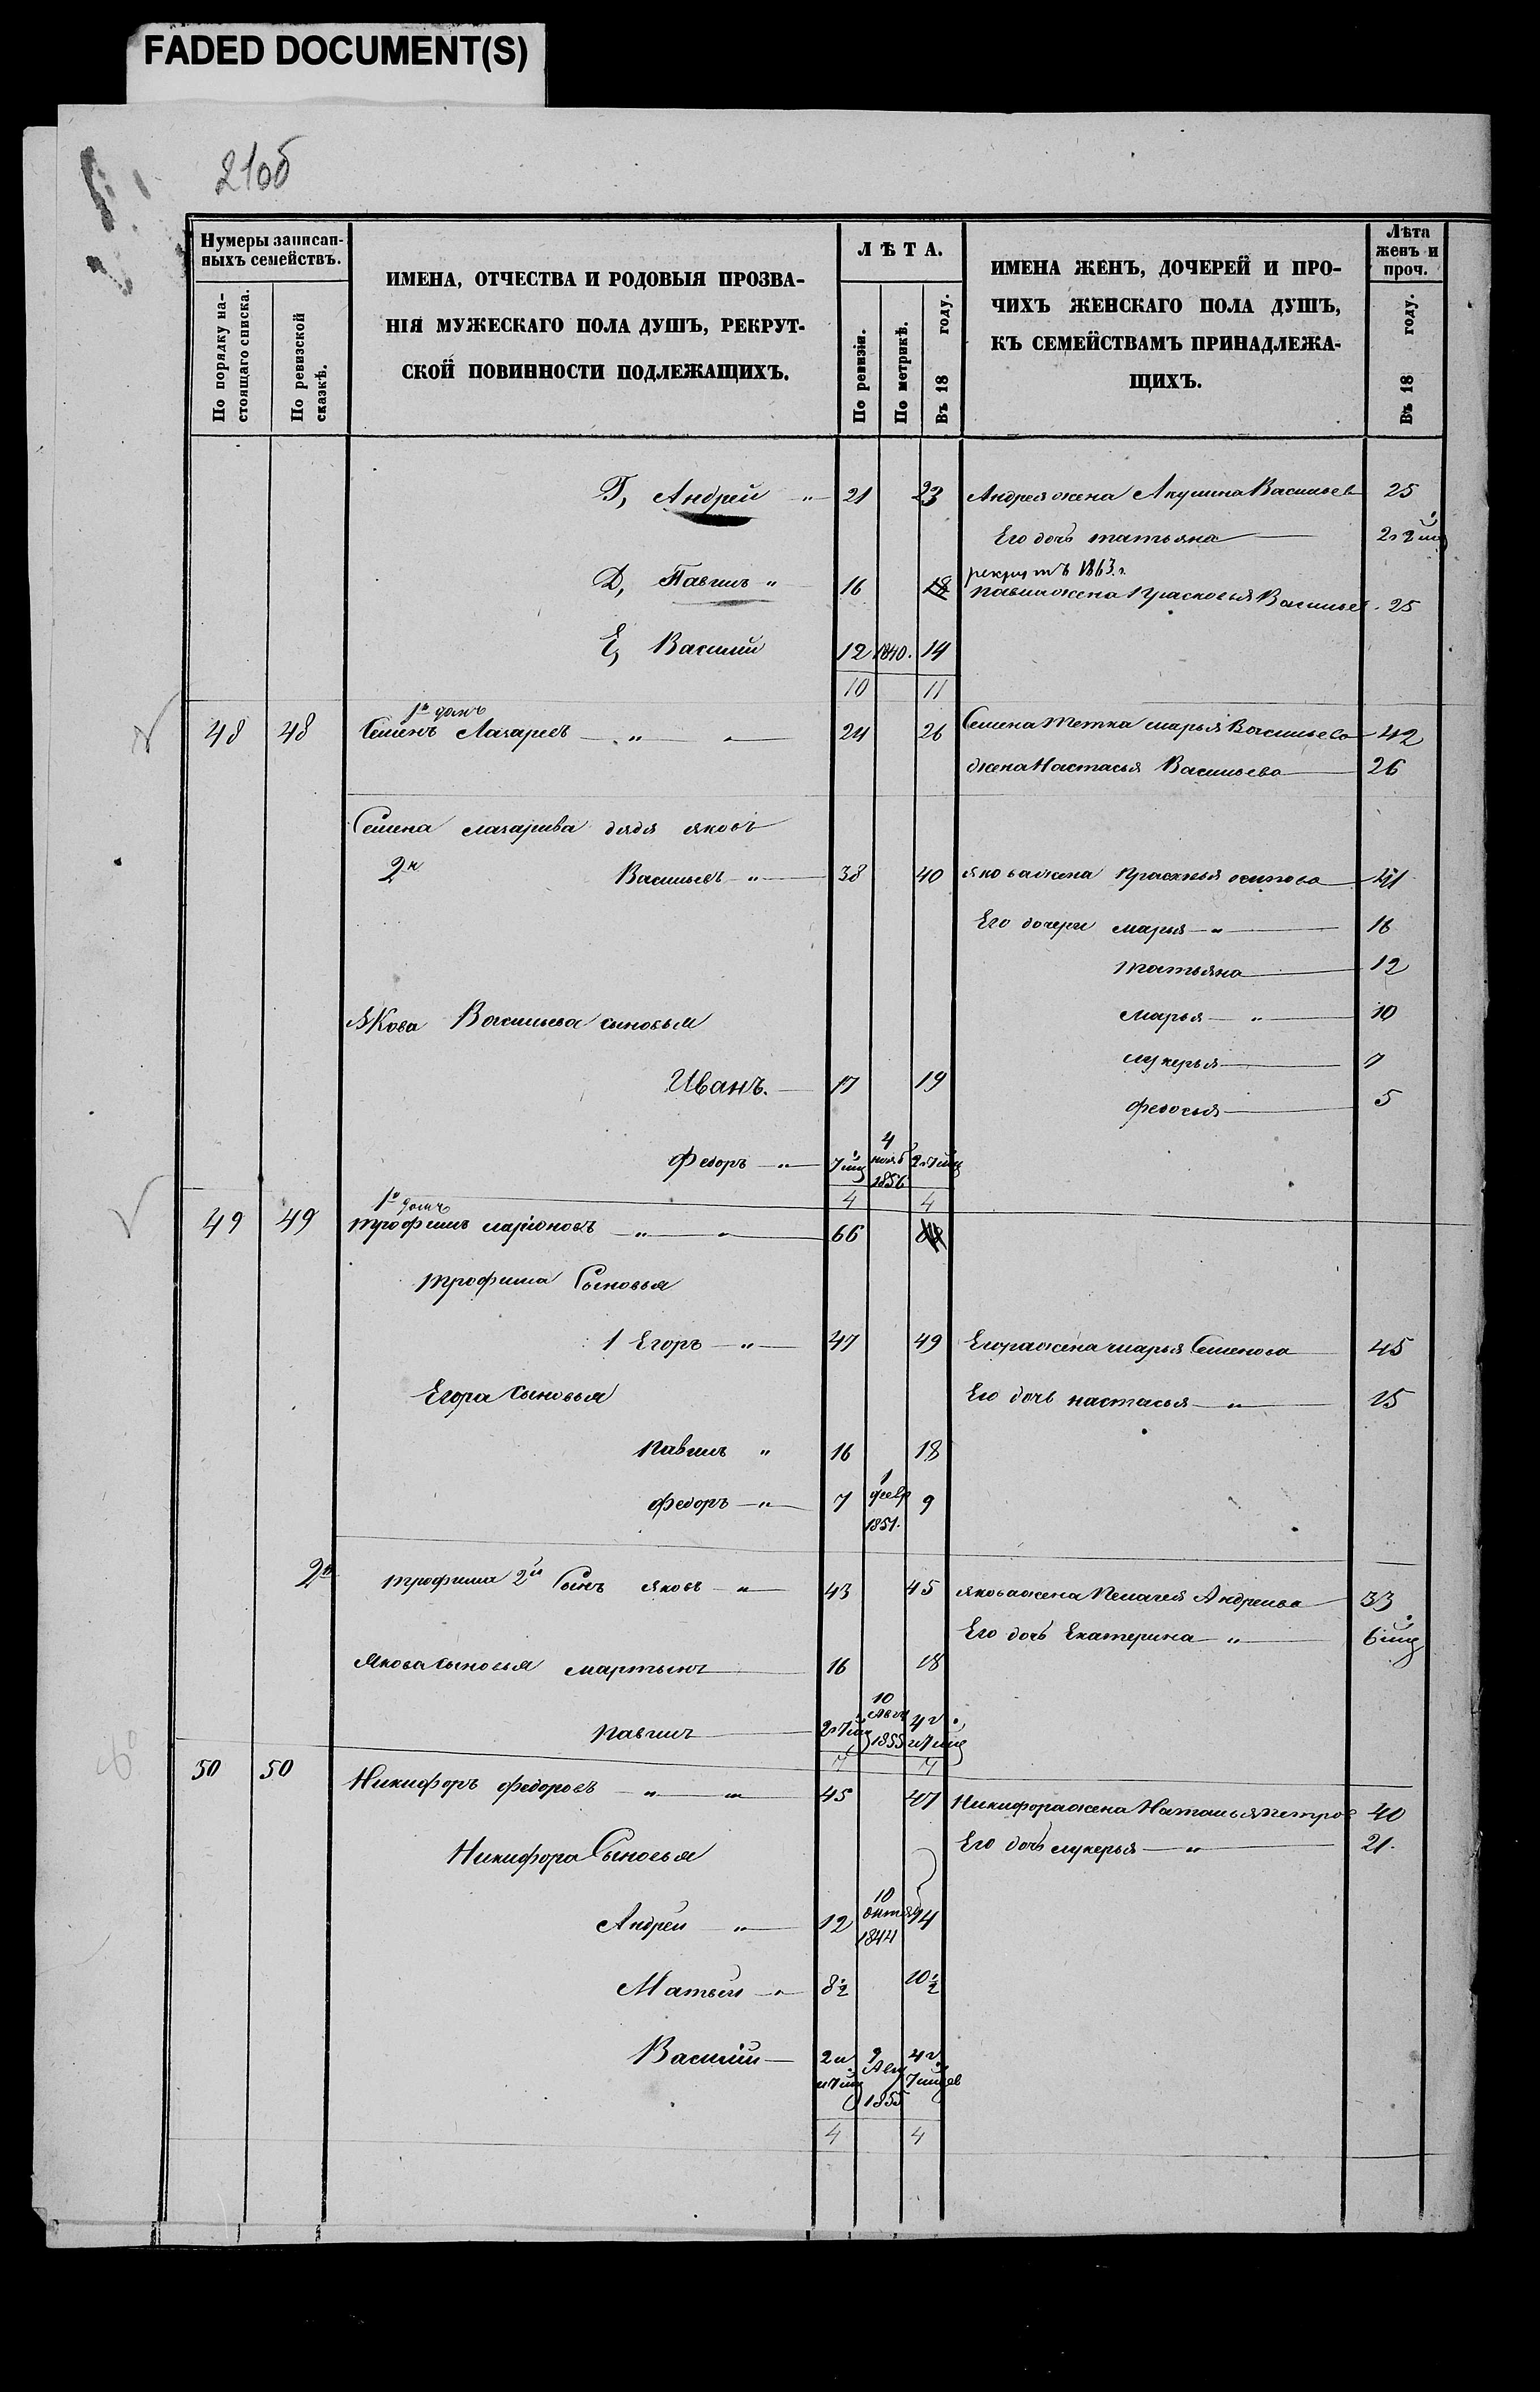 FADED DOCUMENT(S)
21об
Нумеры записан-
ныхъ семействъ.
По порядку на-
стоящаго списка.
По ревизской
сказкѣ.
ИМЕНА, ОТЧЕСТВА И РОДОВЫЯ ПРОЗВА-
НІЯ МУЖЕСКАГО ПОЛА ДУШЪ, РЕКРУТ-
СКОЙ ПОВИННОСТИ ПОДЛЕЖАЩИХЪ.
ЛѢТА.
По ревизіи.
По метрикѣ.
Въ 18 году.
ИМЕНА ЖЕНЪ, ДОЧЕРЕЙ И ПРО-
ЧИХЪ ЖЕНСКАГО ПОЛА ДУШЪ,
КЪ СЕМЕЙСТВАМЪ ПРИНАДЛЕЖА-
ЩИХЪ.
Лѣта
женъ и
проч.
Въ 18 году.
Г, Андрей " 21 23 Андрея жена Акулина Васильев 25
Его дочь татьяна
Д, Павилъ " 16 18 рекрутъ 1863 г.
павила жена Прасковья Васильев 25
Е, Василий 12 1840. 14
10 11
1й домъ
48 48 Семенъ Лазаревъ " " 24 26 Семена тетка марья Васильева 42
жена Настасья Васильева 26
Семена лазарива дядя яковъ
2й Васильевъ " 38 40 якова жена Прасковья осипова 41
Его дочери марья " 16
татьяна 12
Якова Васильева сыновья марья " 10
лукерья 7
Иванъ. 17 19
федосья 5
федоръ " 7 мц 4 нояб 1856 2 г 7 мц
4 4
1й домъ
49 49 трофимъ ларионовъ " " 66 68
трофима Сыновья
1 Егоръ " 47 49 Егора жена марья Семенова 45
Егора Сыновья Его дочь настасья " 15
павилъ " 16 18
федоръ " 7 1 февр 1851. 9
2й трофима 2й Сынъ яковъ " 43 45 якова жена Пелагея Андреева 33
Его дочь Екатерина " 6 мц
Якова сыновья мартынъ 16 18
павилъ 2 г 7 мц 10 Авгу 1855 4 г и 7 мц
7 7
50 50 Никифоръ федоровъ " " 45 47 Никифора жена Наталья петров 40
Никифора Сыновья Его дочь лукерья " 21.
Андрей " 12 10 октяб 1844 14
Матвей " 8½ 10½
Василий 2 г и 7 мц 9 Авгу 1855 4 г 7 мцев
4 4